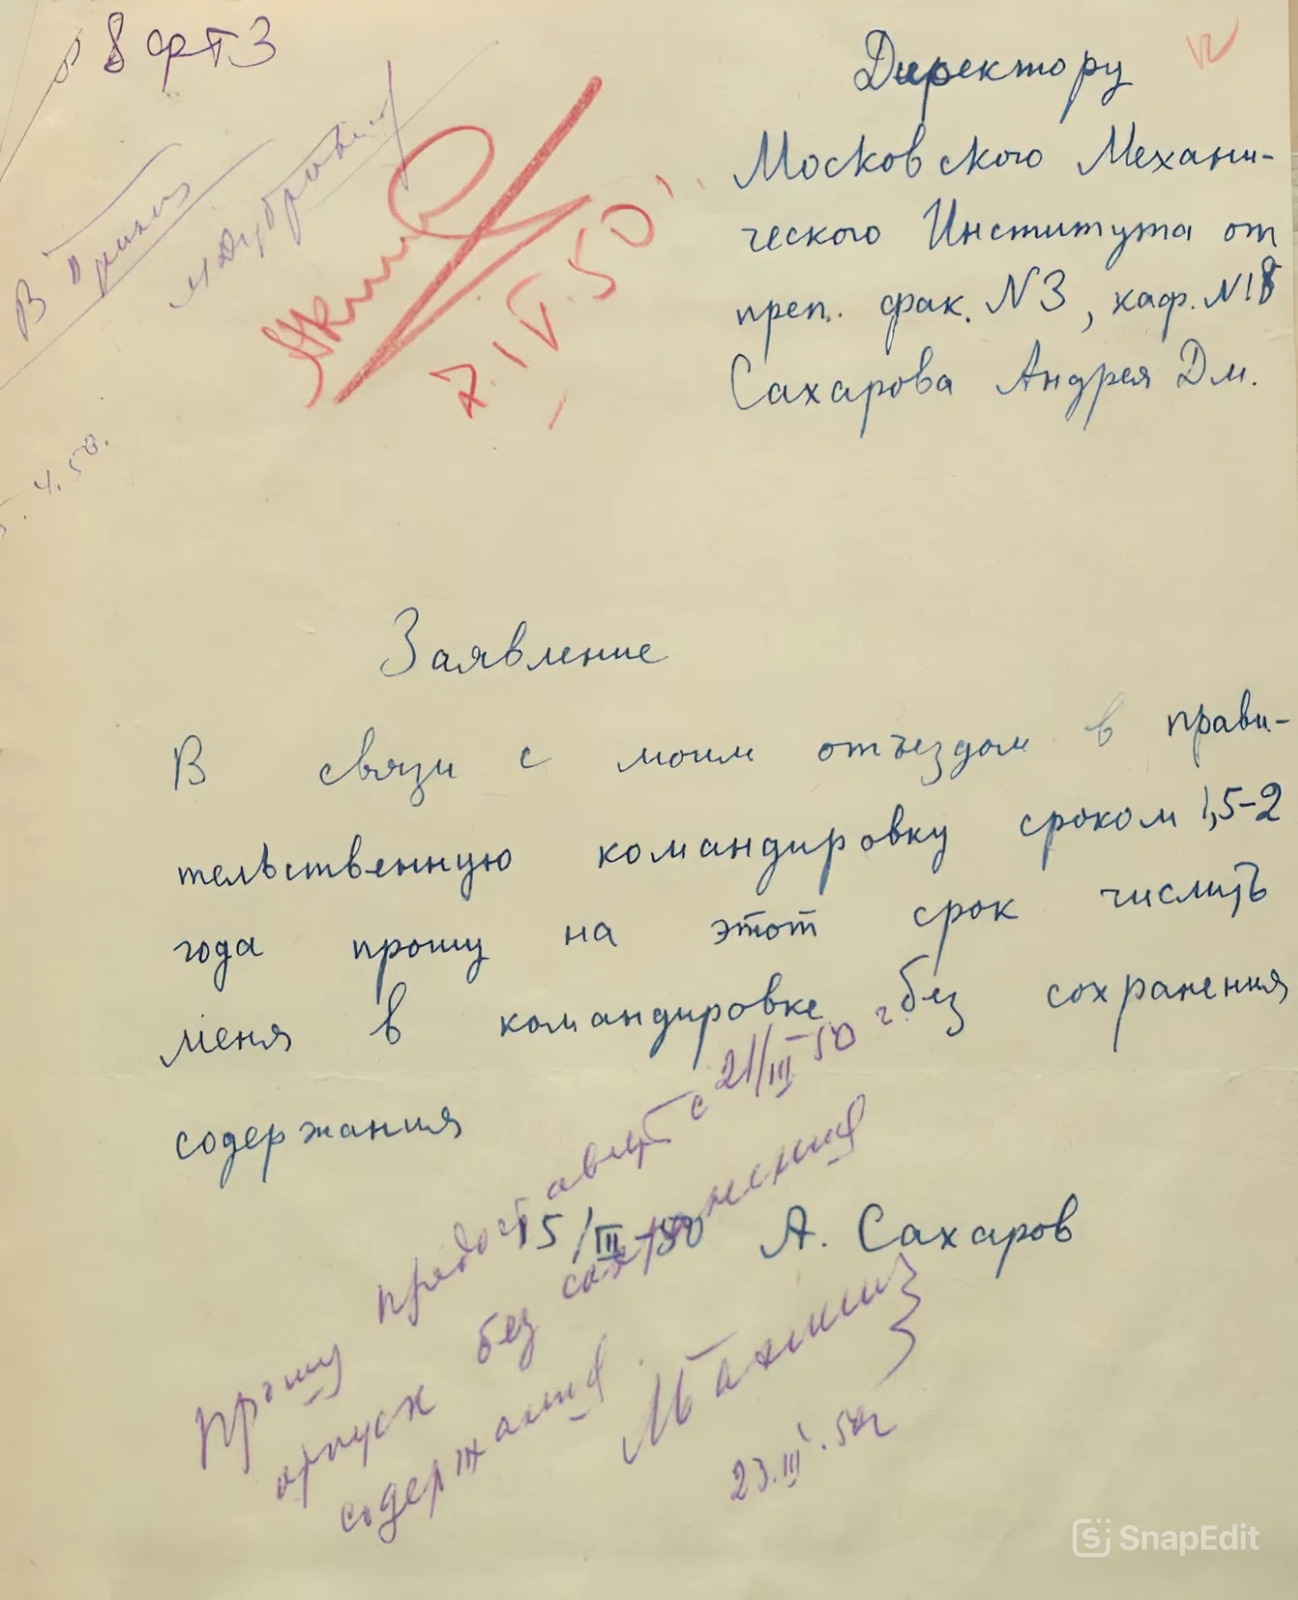 8 фт 3
Директору
Московского Механи-
ческого Института от
преп. фак. N3, каф. N18
Сахарова Андрея Дм.
В приказ
7.IV.50
4.50.
Заявление
В связи с моим отъездом в прави-
тельственную командировку сроком 1,5-2
года прошу на этот срок числить
меня в командировке без сохранения
содержания
15/III-50 А. Сахаров
Прошу предоставить с 21/III 50 г.
отпуск без сохранения
содержания
23.III.50г
SnapEdit